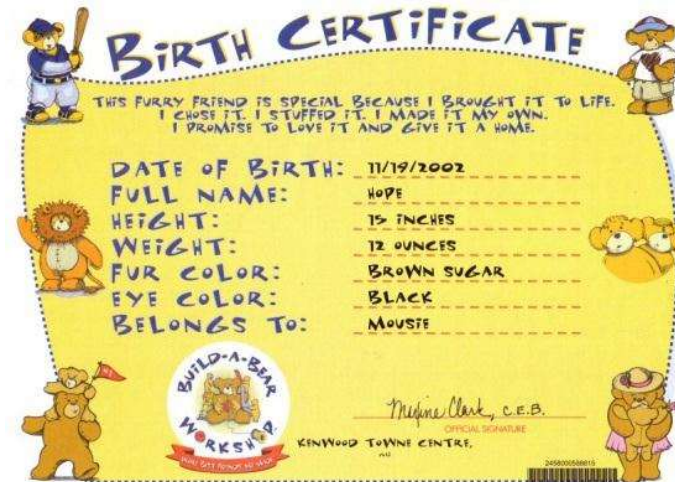 BIRTH CERTIFICATE
THIS FURRY FRIEND IS SPECIAL BECAUSE I BROUGHT IT TO LIFE.
I CHOSE IT. I STUFFED IT. I MADE IT MY OWN.
I PROMISE TO LOVE IT AND GIVE IT A HOME.
DATE OF BIRTH: 11/19/2002
FULL NAME: HOPE
HEIGHT: 15 INCHES
WEIGHT: 12 OUNCES
FUR COLOR: BROWN SUGAR
EYE COLOR: BLACK
BELONGS TO: MOUSIE
BUILD-A-BEAR
WORKSHOP
Maxine Clark, C.E.B.
OFFICIAL SIGNATURE
KENWOOD TOWNE CENTRE,